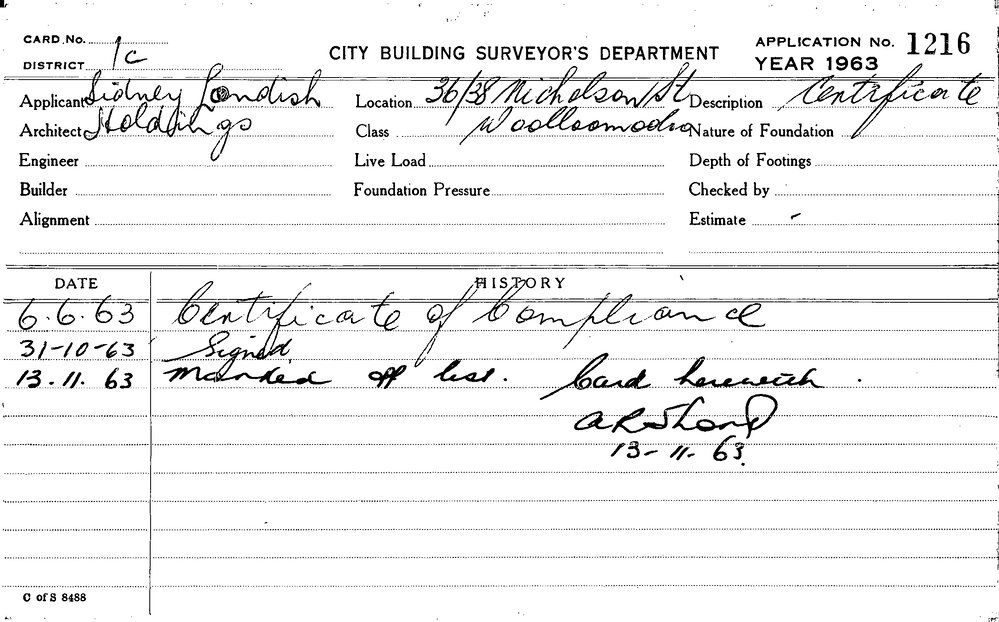 CARD No.
DISTRICT 1C
CITY BUILDING SURVEYOR'S DEPARTMENT
APPLICATION No. 1216
YEAR 1963
Applicant Sidney Londish Location 36/38 Nicholson St Description Certificate
Architect Holdings Class Woolloomooloo Nature of Foundation
Engineer Live Load Depth of Footings
Builder Foundation Pressure Checked by
Alignment Estimate -
DATE HISTORY
6.6.63 Certificate of Compliance
31-10-63 Signed
13.11.63 Marked off list. Card herewith.
13-11-63.
C of S 8488